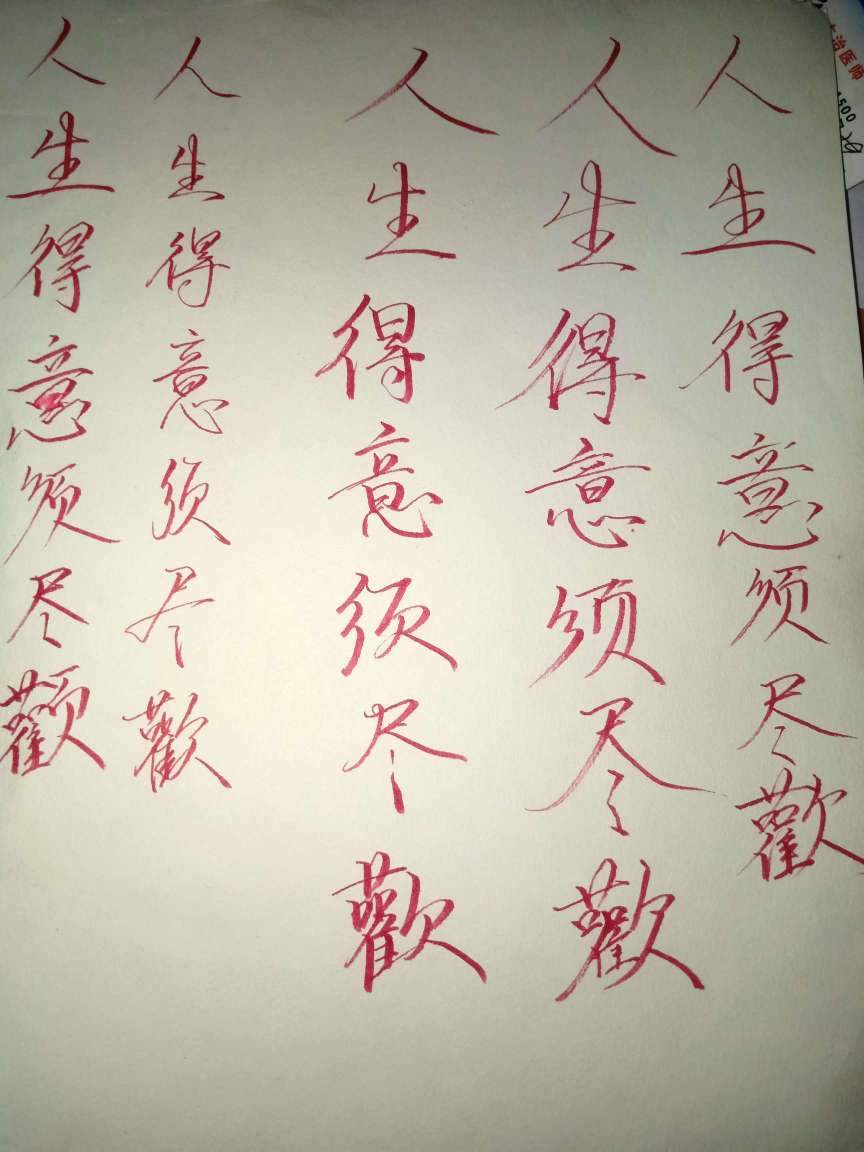 人生得意须尽歡
人生得意须尽歡
人生得意须尽歡
人生得意须尽歡
人生得意须尽歡
治医师